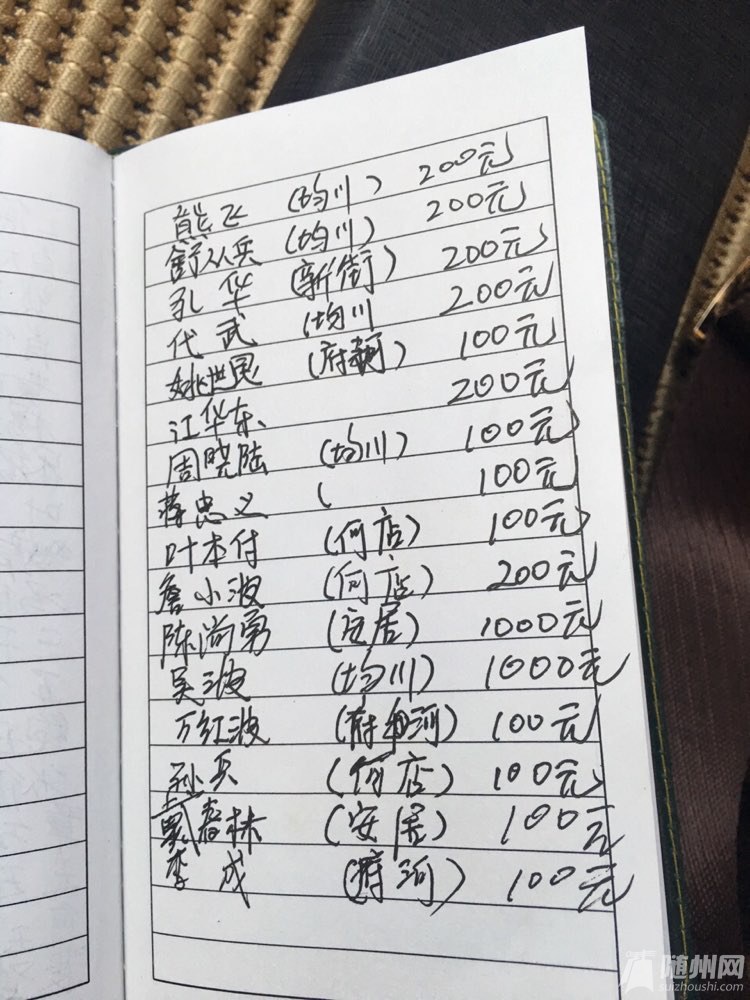 熊飞 (均川) 200元
舒从兵 (均川) 200元
孔华 (新街) 200元
代武 (均川 200元
姚世民 (府河) 100元
江华东 200元
周晓陆 (均川) 100元
蒋忠义 ( 100元
叶本付 (何店) 100元
詹小波 (何店) 200元
陈尚勇 (安居) 1000元
吴波 (均川) 1000元
万红波 (府河) 100元
孙兵 (何店) 100元
戴春林 (安居) 100元
李成 (府河) 100元
随州网
suizhoushi.com